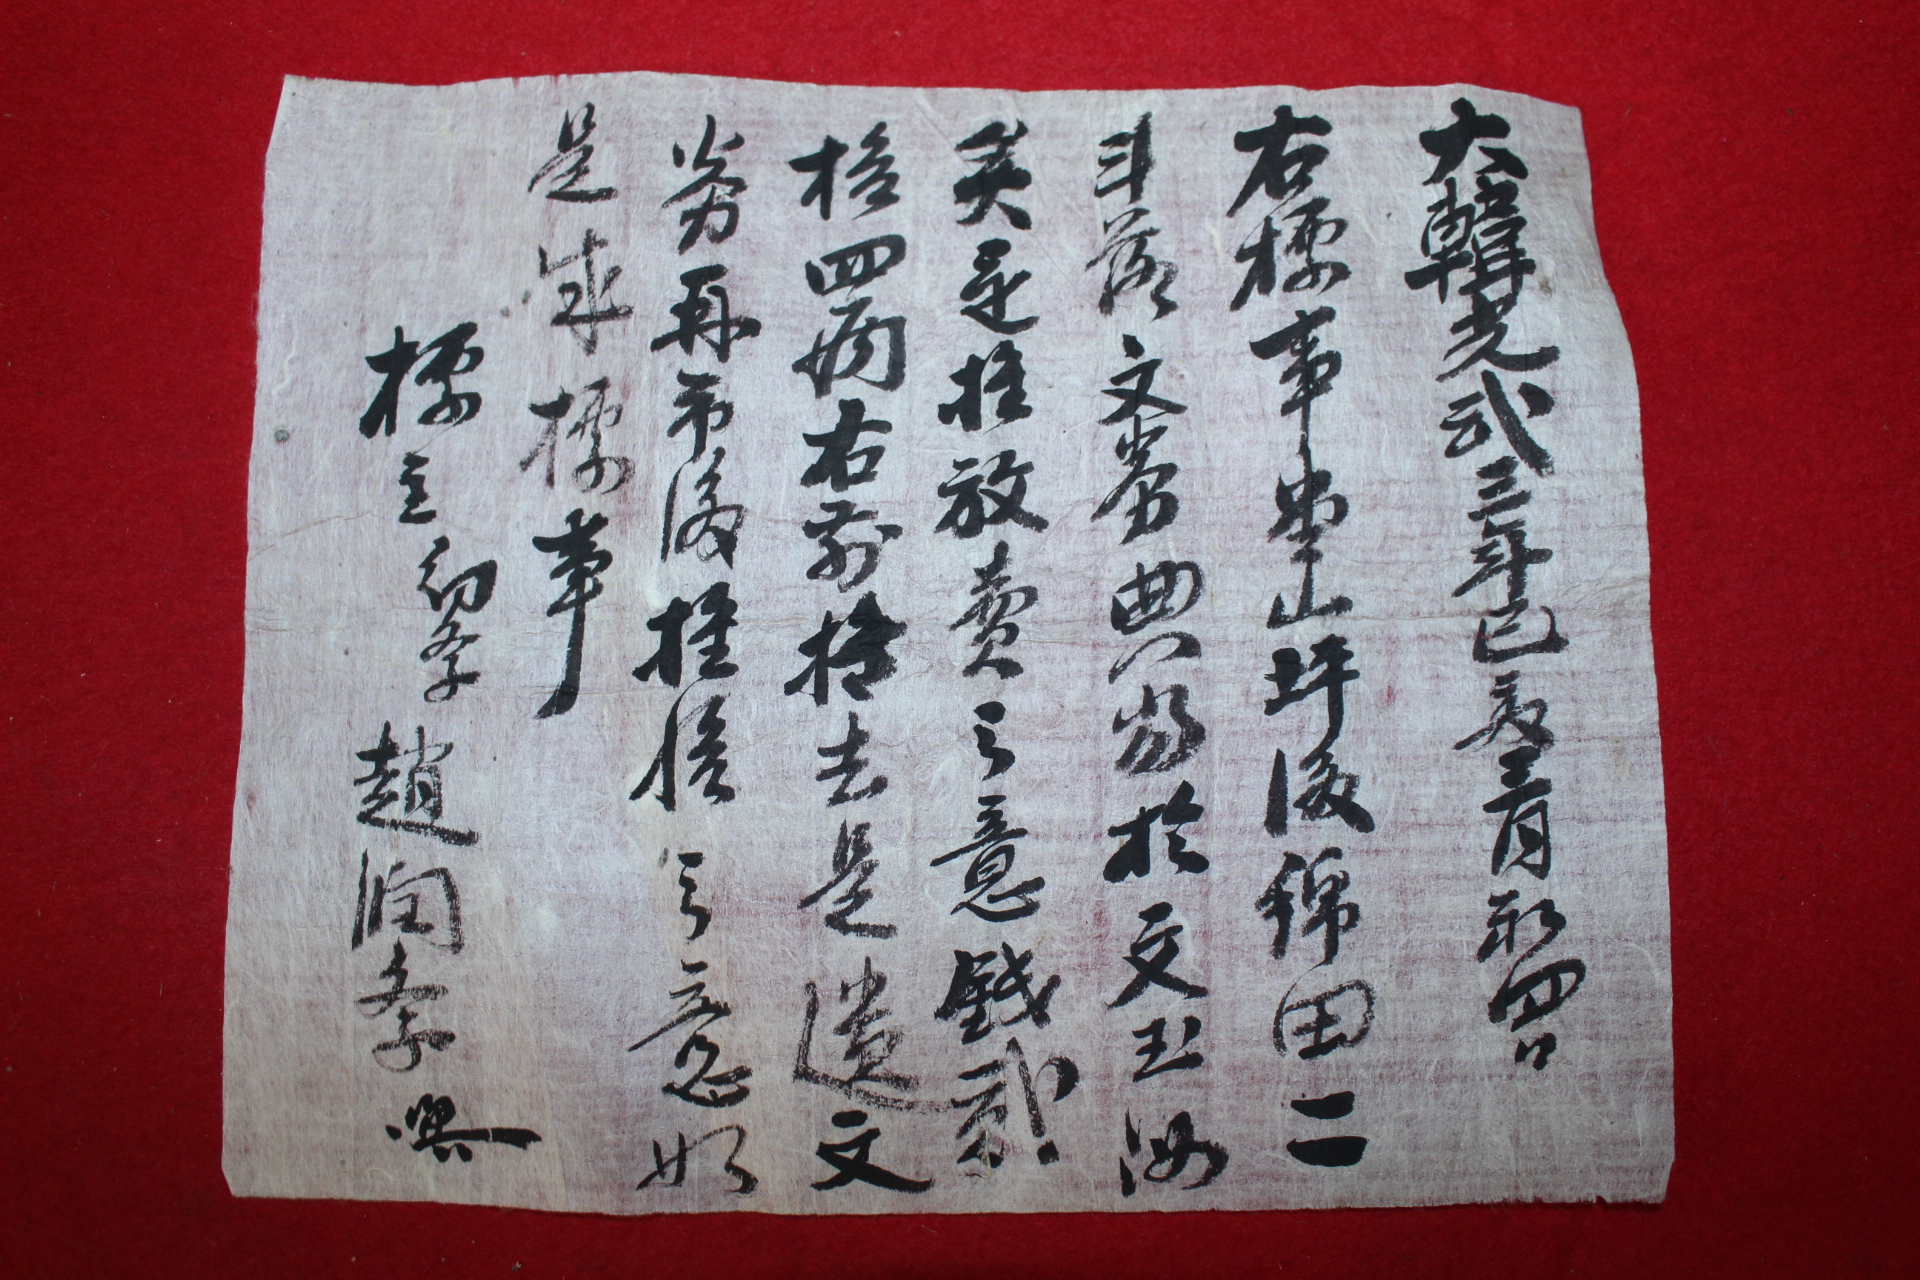 大韓光武三年己亥三月初四日
右標事堂山坪後錦田二
斗落文券典當於文主
矣是在放賣之意錢貳
拾四兩右前捧去是遣文
券再市後推給之意如
是成標事
標主幼學
趙潤學